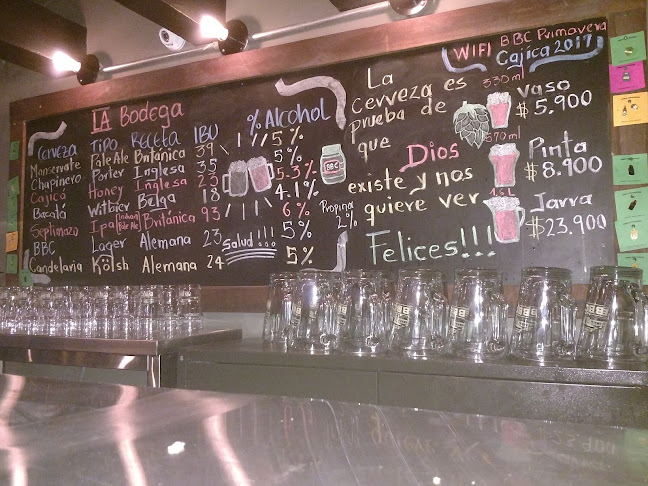 LA Bodega
Cerveza TIPO RECETA IBU % Alcohol
Monserrate Pale Ale Británica 39 5 %
Chapinero Porter Inglesa 35 5 %
Cajicá Honey Inglesa 23 5.3 %
Bacatá Witbier Belga 18 4.1 %
Septimazo Ipa (Indian Pale Ale) Británica 93 6 %
BBC Lager Alemana 23 5 %
Candelaria Kölsh Alemana 24 5 %
Salud!!!
BBC
Propina 2%
La
cerveza es
prueba de
que
Dios
existe y nos
quiere ver
Felices!!!
WIFI BBC Primavera
Cajica 2017
330 ml
vaso
$ 5.900
570 ml
Pinta
$ 8.900
1.5 L
Jarra
$ 23.900